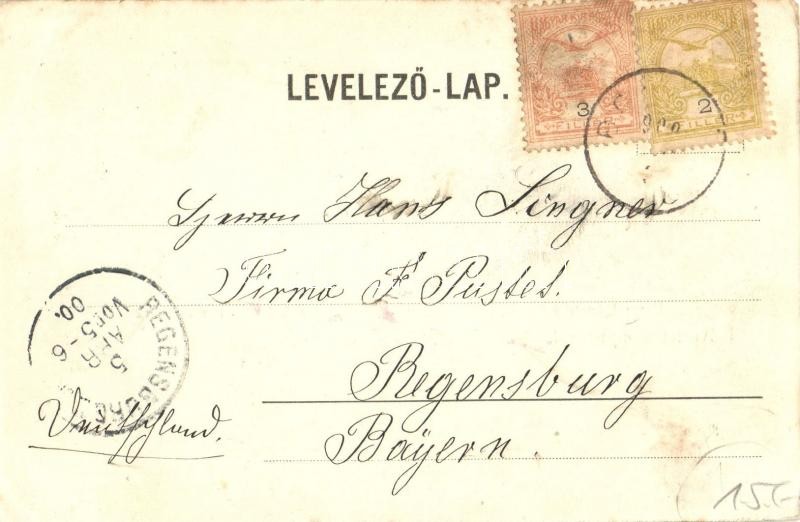 LEVELEZŐ-LAP.
MAGYAR KIR. POSTA
3
FILLÉR
MAGYAR KIR. POSTA
2
FILLÉR
900
Herrn Hans Singner
Firma F. Pustet.
Regensburg
Bayern.
Deutschland.
REGENSBURG
5
APR
Vor 5-6
00.
15.-